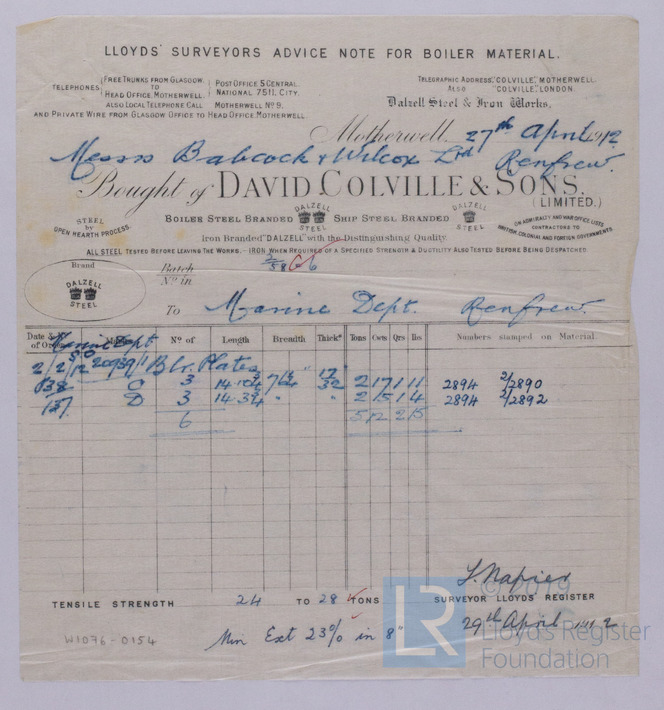 LLOYDS' SURVEYORS ADVICE NOTE FOR BOILER MATERIAL.
TELEPHONES
FREE TRUNKS FROM GLASGOW TO HEAD OFFICE MOTHERWELL.
POST OFFICE 5 CENTRAL.
NATIONAL 7511. CITY.
ALSO LOCAL TELEPHONE CALL MOTHERWELL Nº 9.
AND PRIVATE WIRE FROM GLASGOW OFFICE TO HEAD OFFICE MOTHERWELL.
TELEGRAPHIC ADDRESS, "COLVILLE", MOTHERWELL.
ALSO "COLVILLE", LONDON.
Dalzell Steel & Iron Works,
Motherwell, 27th April 1912
Messrs Babcock & Wilcox Ltd Renfrew.
Bought of DAVID COLVILLE & SONS,
(LIMITED.)
STEEL by OPEN HEARTH PROCESS.
BOILER STEEL BRANDED DALZELL STEEL SHIP STEEL BRANDED DALZELL STEEL
ON ADMIRALTY AND WAR OFFICE LISTS
CONTRACTORS TO
BRITISH, COLONIAL AND FOREIGN GOVERNMENTS
Iron Branded "DALZELL" with the Distinguishing Quality.
ALL STEEL TESTED BEFORE LEAVING THE WORKS. – IRON WHEN REQUIRED OF A SPECIFIED STRENGTH & DUCTILITY ALSO TESTED BEFORE BEING DESPATCHED
Brand
DALZELL STEEL
Batch
Nº in
To Marine Dept. Renfrew.
Date & Nº of Order Nº of Length Breadth Thickˢ Tons Cwts Qrs lbs Numbers stamped on Material.
Marine Dept
2/2/12 Blr. Plates
C 3 2 17 1 11 2894 2/2890
D 3 " " 2 15 1 4 2894 2/2892
6 5 12 2 15
TENSILE STRENGTH 24 TO 28 TONS
Min Ext 23% in 8"
J. Napier
SURVEYOR LLOYDS' REGISTER
29th April 1912
W1076-0154
LR
© 2019
Lloyd's Register
Foundation